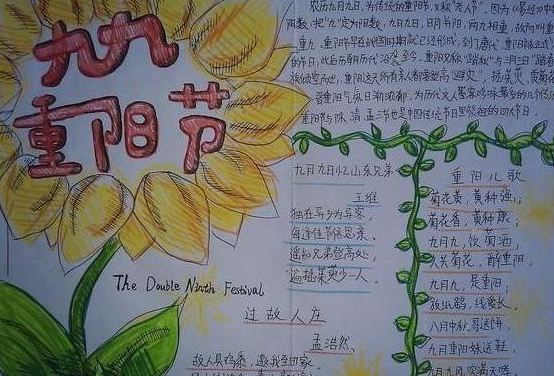 九九
重阳节
The Double Ninth Festival
农历九月九日,为传统的重阳节,又称"老人节"。因为《易经》中
两数,把"九"定为阳数,九月九日,日月并阳,两九相重,故而叫重
重九。重阳节早在战国时期就已经形成,到了唐代,重阳被正式
的节日,此后历朝历代沿袭至今。重阳又称"踏秋"与
重阳这天所有亲人都要
为历代文人墨客
重阳节与除、清、盂三节也是中国传统节日里祭祖的四大节日。
九月九日忆山东兄弟
王维
独在异乡为异客,
每逢佳节倍思亲。
遥知兄弟登高处,
遍插茱萸少一人。
过故人庄
孟浩然,
故人具鸡黍,邀我至田家。
重阳儿歌
菊花黄,黄种强;
菊花香,黄种康;
九月九,饮菊酒,
人共菊花,醉重阳。
九月九,是重阳;
放纸鹞,线爱长,
八月中秋哥送饼,
九月重阳妹送鞋。
九月九,风吹满天